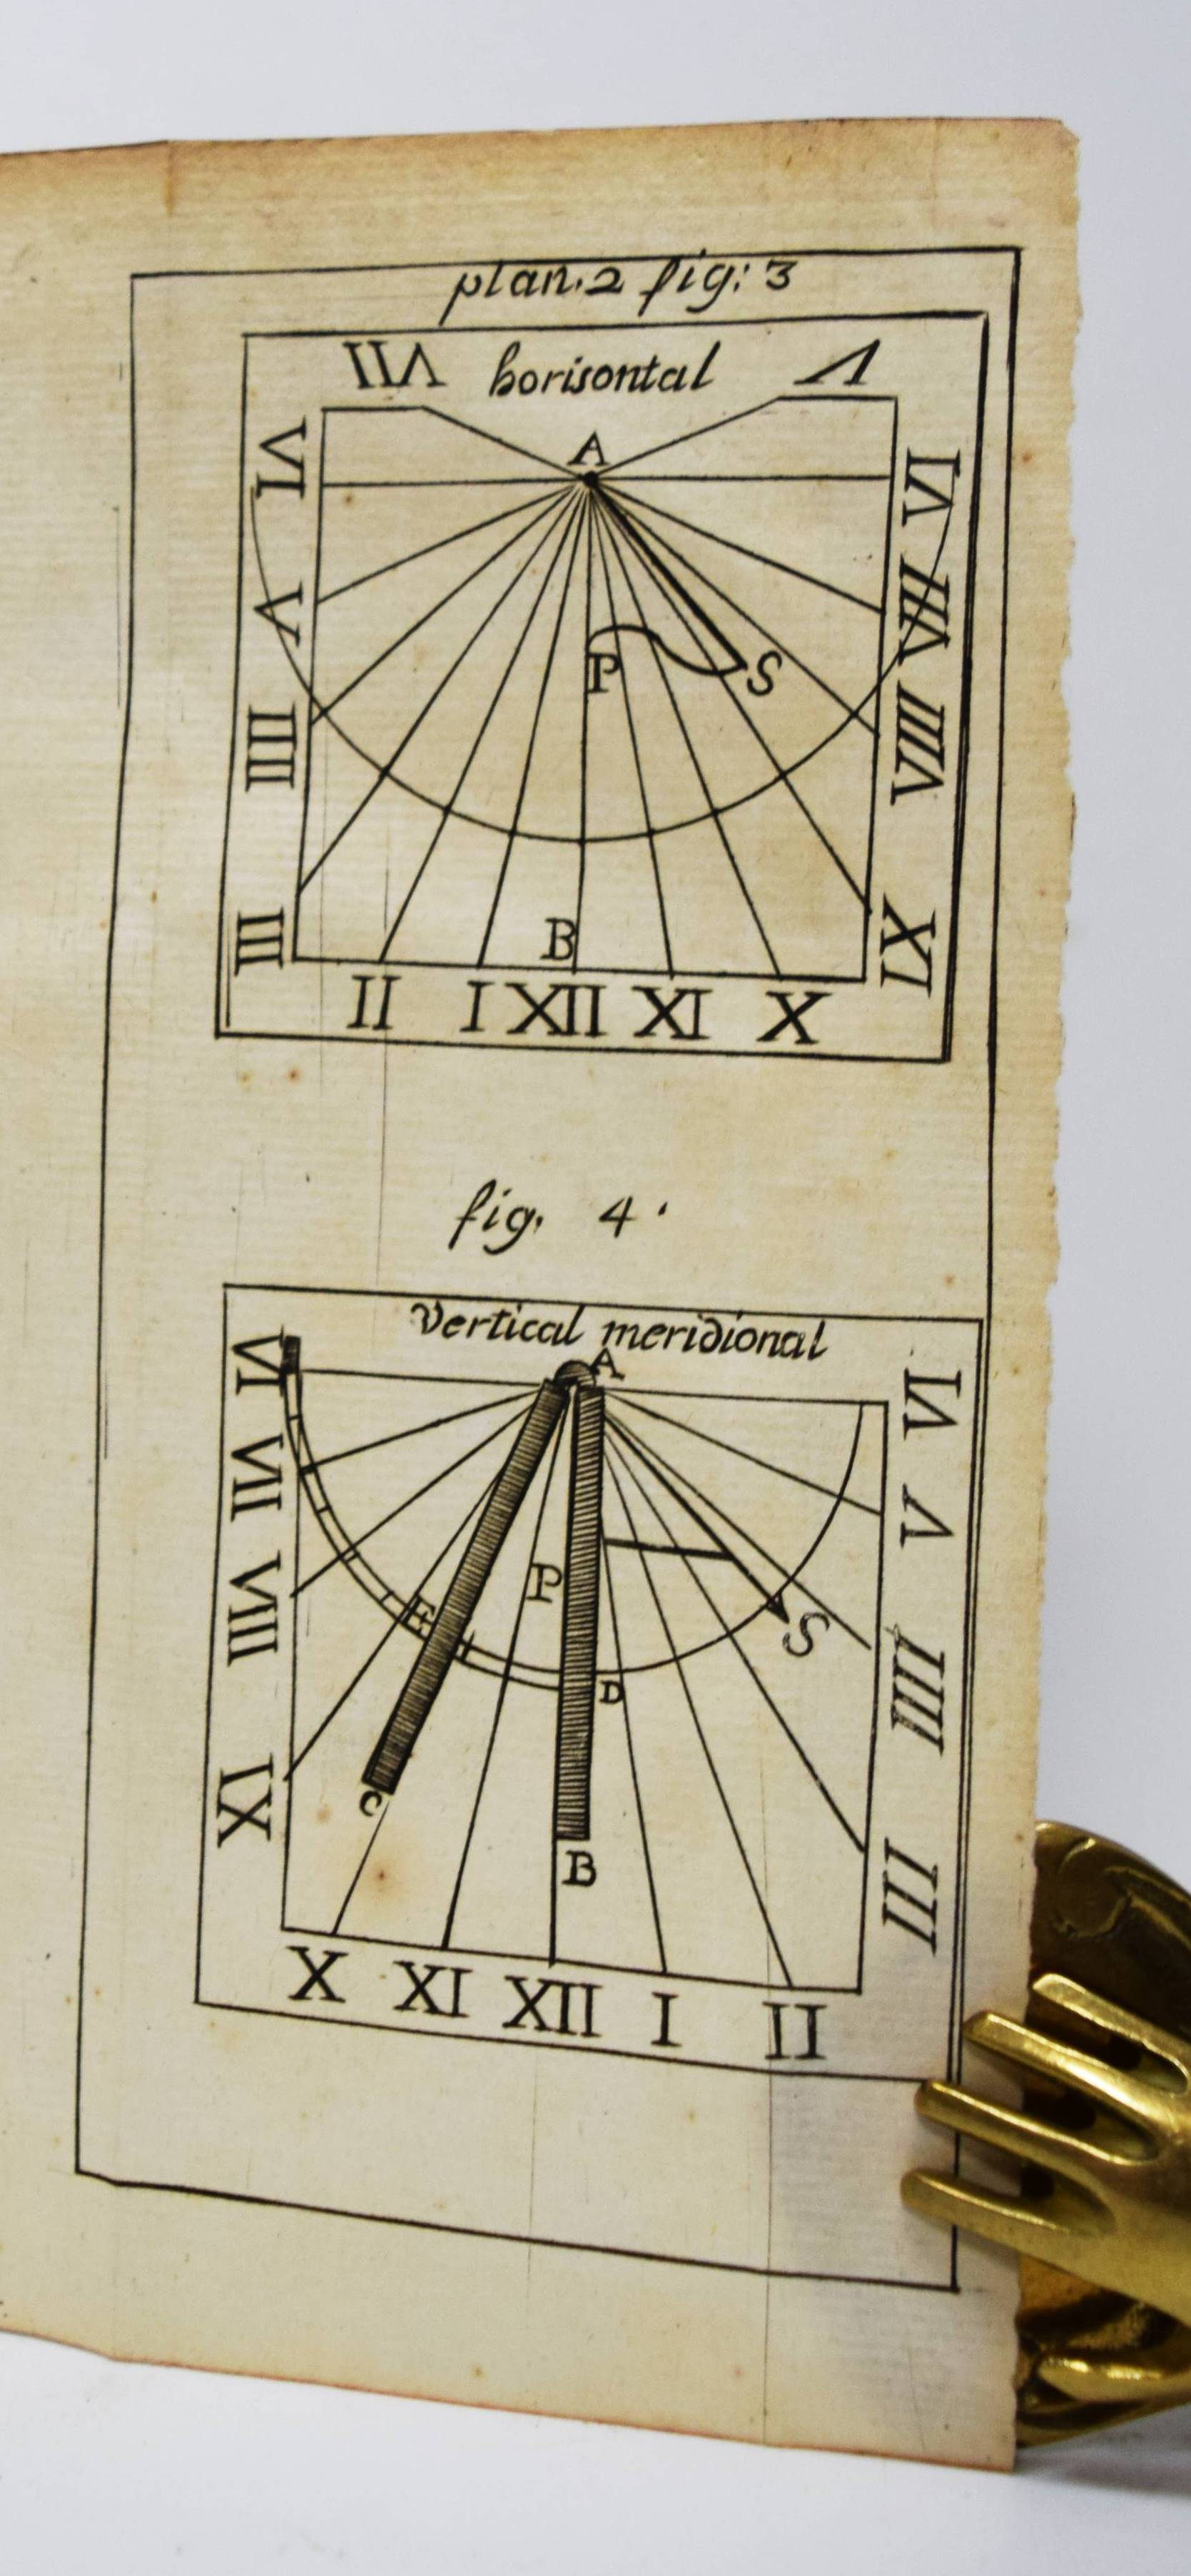 plan. 2 fig: 3
VII horisontal V
A
VI
VI
V
VII
P S
IIII
VIII
III
B
IX
II I XII XI X
fig. 4.
vertical meridional
A
VI
VI
VII
V
P
VIII
E
S
IIII
D
IX
C
B
III
X XI XII I II